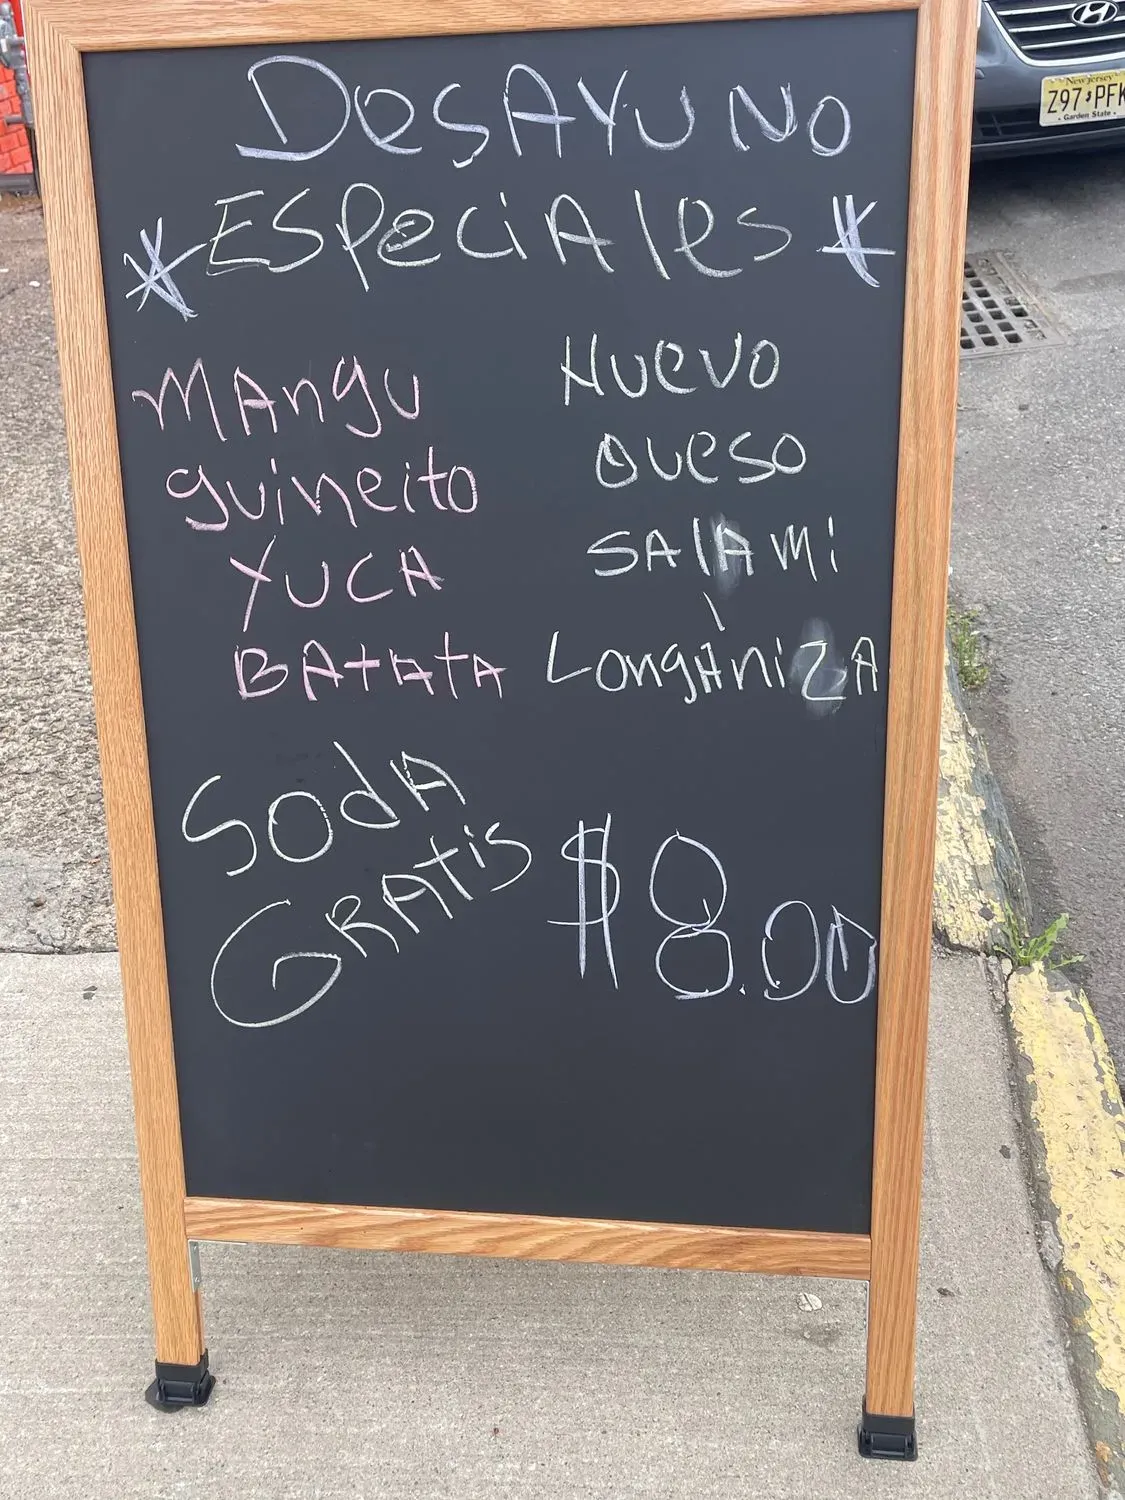 DesAYUNO
*ESPeciAles*
MAngu
guineito
YUCA
BATATA
HUeVO
QUeso
SAlAMi
LongAniZA
SodA
GRATis
$8.00
New Jersey
Z97 PFK
Garden State